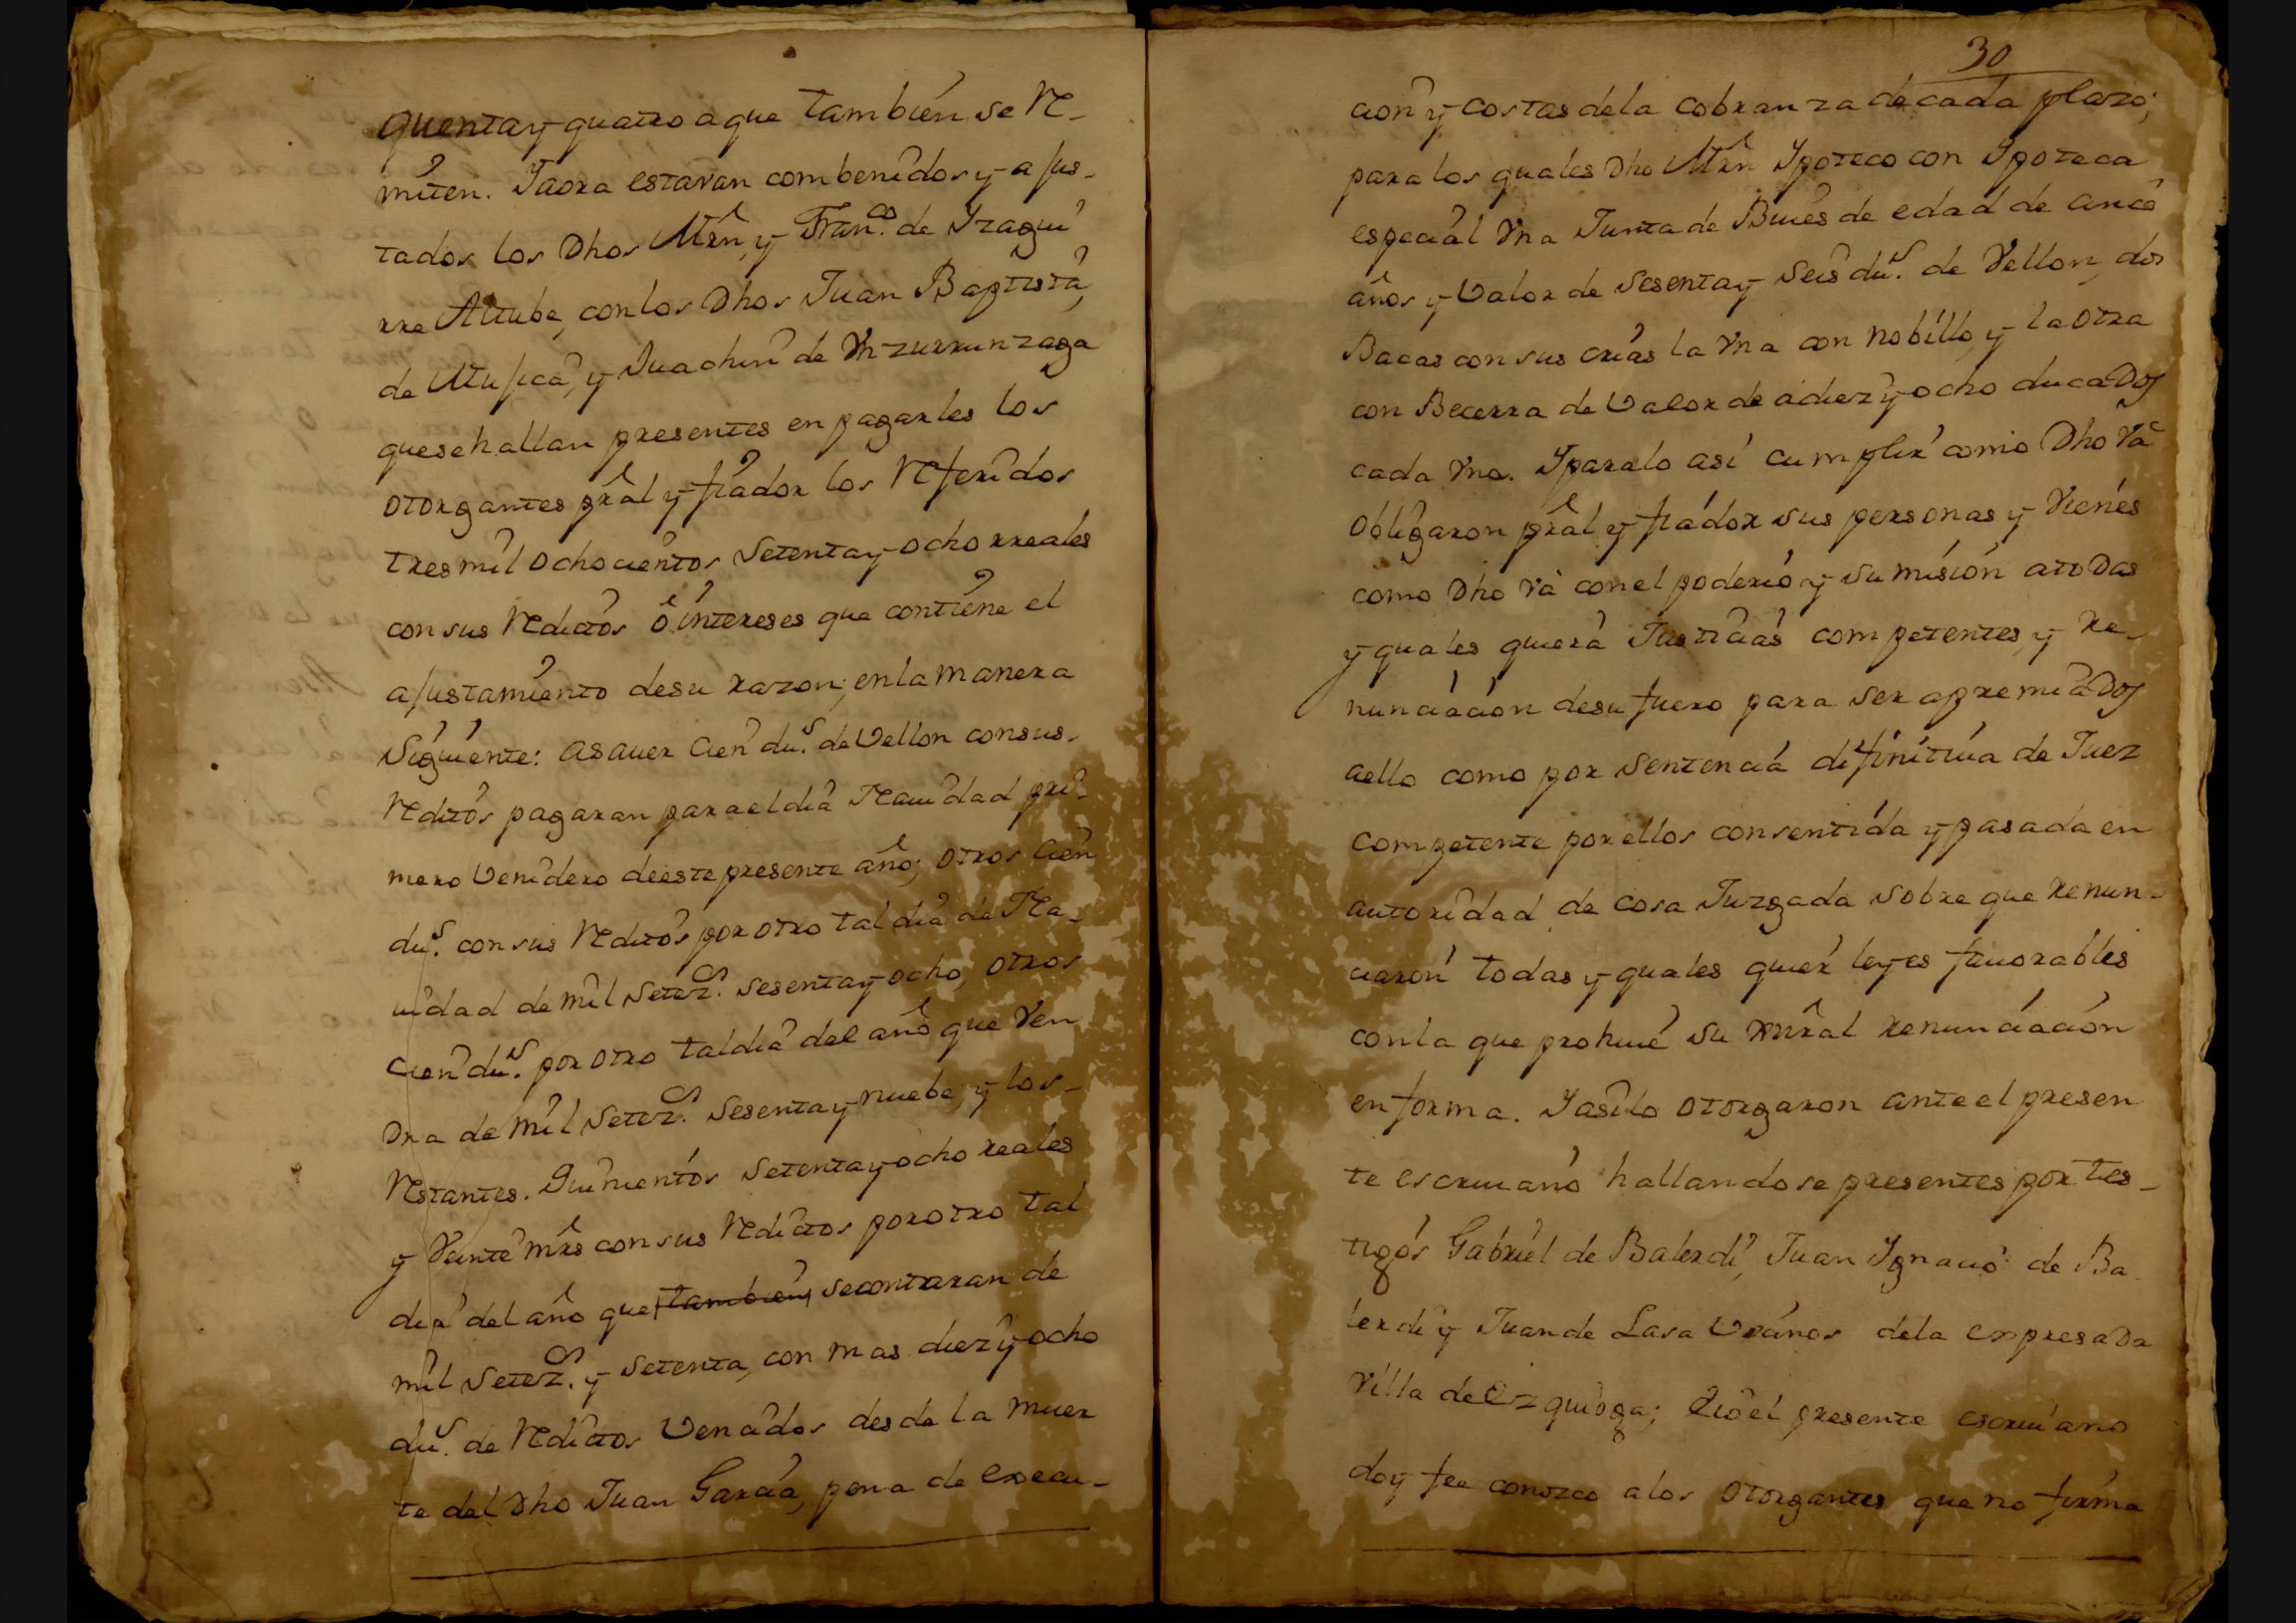 quenta y quatro a que tambien se re-
miten. Yaora estavan combenidos y ajus-
tados los Dhos Mrn, y Franco. de Yzagui
rre Altube, con los Dhos Juan Baptista
de y Juachin de Vnzurrunzaga
que se hallan presentes en pagarles los
otorgantes pral y fiador los referidos
tres mil ochocientos setenta y ocho rreales
con sus reditos ô intereses que contiene el
ajustamiento de su razon; en la manera
siguiente: asauer cien dus. de Vellon con sus
reditos pagaran para el dia Nauidad pri-
mero venidero de este presente año; otros cien
dus. con sus reditos por otro tal dia de Na-
uidad de mil setezs. sesenta y ocho, otros
cien dus. por otro tal dia del año que ven
dra de mil setezs. sesenta y nuebe, y los
restantes. Quinientos setenta y ocho reales
y veinte mrs con sus reditos por otro tal
dia del año que tambien se contaran de
mil setezs. y setenta, con mas diez y ocho
dus. de reditos vencidos desde la muer
te del Dho Juan Garcia, pena de execu-
30
cion y costas de la cobranza de cada plazo;
para los quales Dho Mrn Ypoteco con Ypoteca
especial vna Junta de Bueies de edad de cinco
años y valor de sesenta y seis dus. de Vellon, dos
Bacas con sus crias la vna con nobillo, y la otra
con Becerra de valor de a diez y ocho ducados
cada vna. Y para lo asi cumplir como Dho vâ
obligaron pral y fiador sus personas y vienes
como Dho và con el poderio y sumision a todas
y quales quiera Justicias competentes, y re-
nunciacion de su fuero para ser apremiados
aello como por sentencia difinitiua de Juez
competente por ellos consentida y pasada en
autoridad de cosa Juzgada sobre que renun-
ciaron todas y quales quier leyes fauorables
con la que prohiue su gnral renunciacion
en forma. Yasilo otorgaron ante el presen
te escriuano hallandose presentes por tes-
tigos Gabriel de Balerdi, Juan Ygnacio de Ba
lerdi y Juan de Lasa vecinos de la expresada
villa de Ezquioga; el presente escriuano
doy fee conozco a los otorgantes que no firma